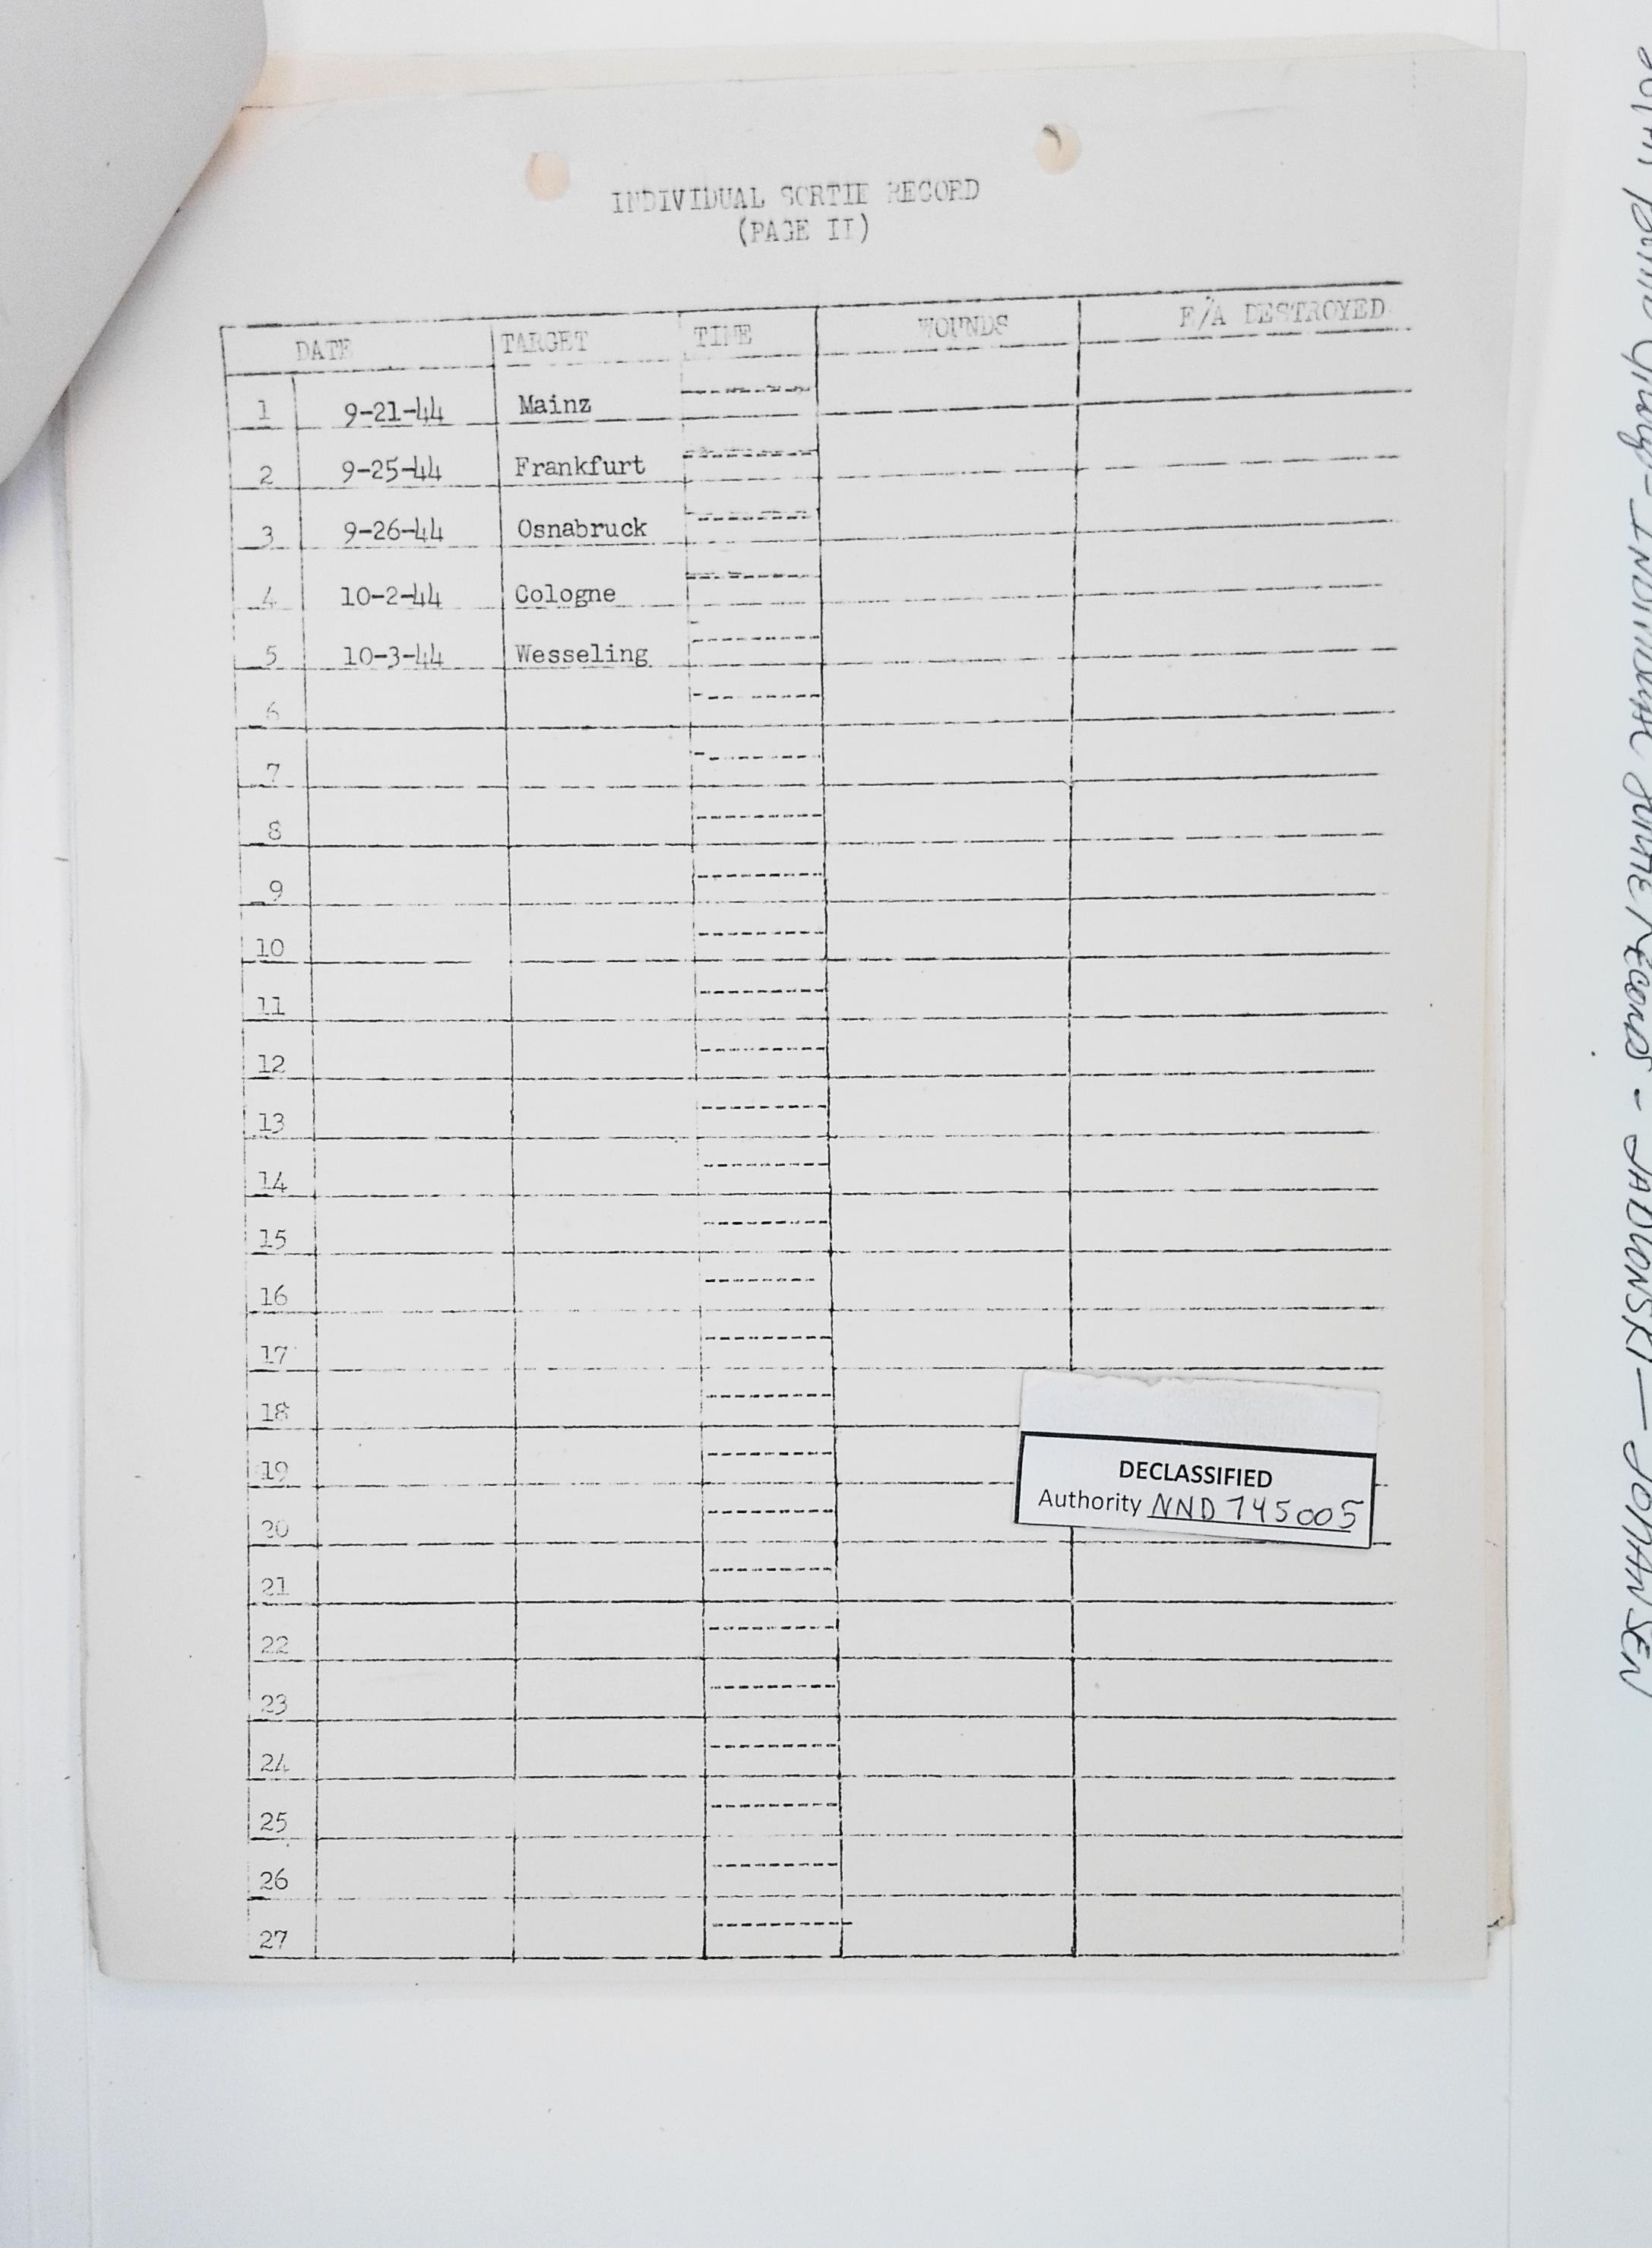 INDIVIDUAL SORTIE RECORD
(PAGE II)
DATE TARGET TIME WOUNDS E/A DESTROYED
1 9-21-44 Mainz
2 9-25-44 Frankfurt
3 9-26-44 Osnabruck
4 10-2-44 Cologne
5 10-3-44 Wesseling
6
7
8
9
10
11
12
13
14
15
16
17
18
19
20
21
22
23
24
25
26
27
DECLASSIFIED
Authority NND 745005
Bomb Group - INDIVIDUAL SORTIE RECORDS - JABLONSKI — JOHANSEN